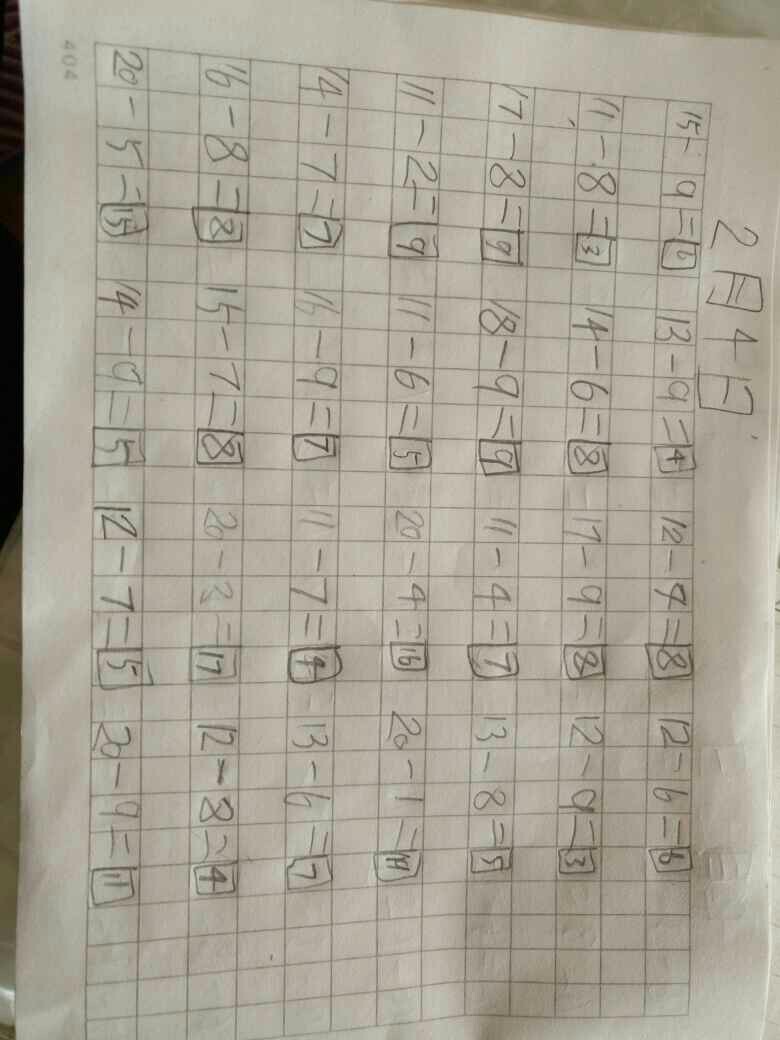 2月4日
15-9=6 13-9=4 12-4=8 12-6=6
11-8=3 14-6=8 17-9=8 12-9=3
17-8=9 18-9=9 11-4=7 13-8=5
11-2=9 11-6=5 20-4=16 20-1=19
14-7=7 16-9=7 11-7=4 13-6=7
16-8=8 15-7=8 20-3=17 12-8=4
20-5=15 14-9=5 12-7=5 20-9=11
404